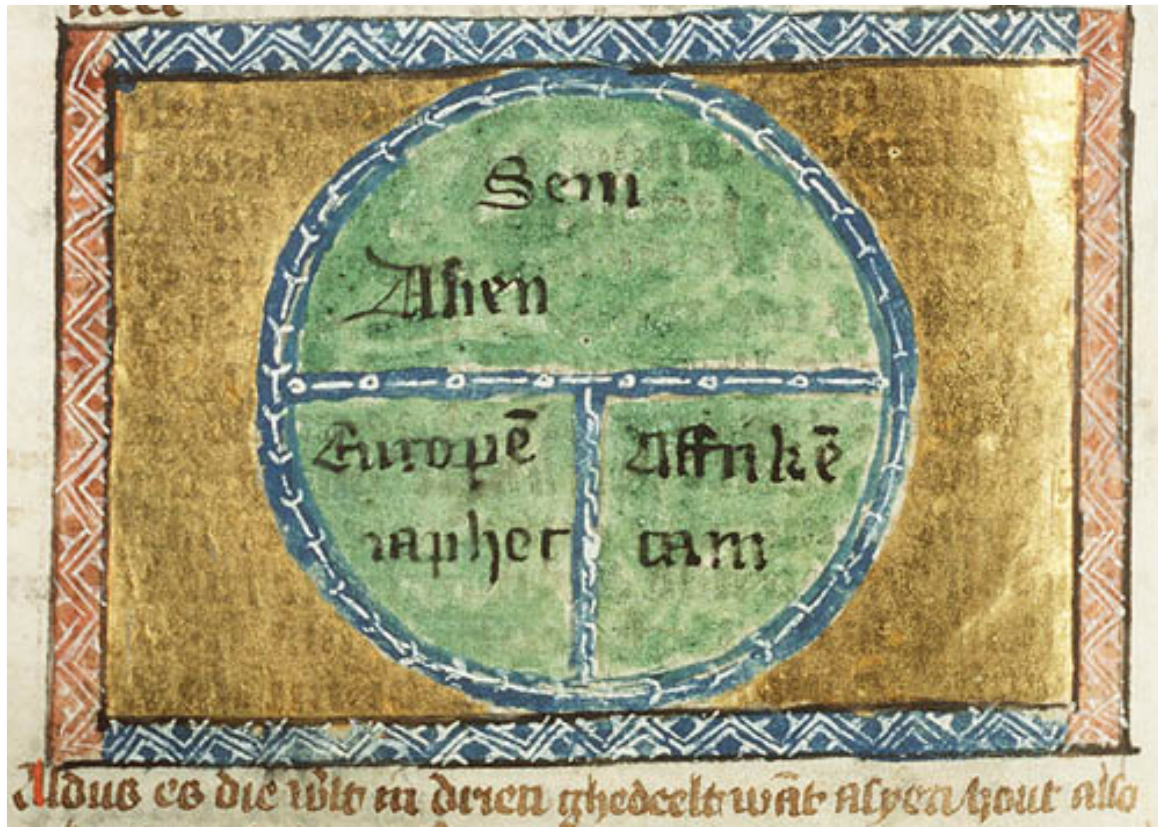 Sem
Asien
Europē Affrikē
iaphet cam
Aldus es die w̄lt in drien ghedeelt wāt asyen hout also